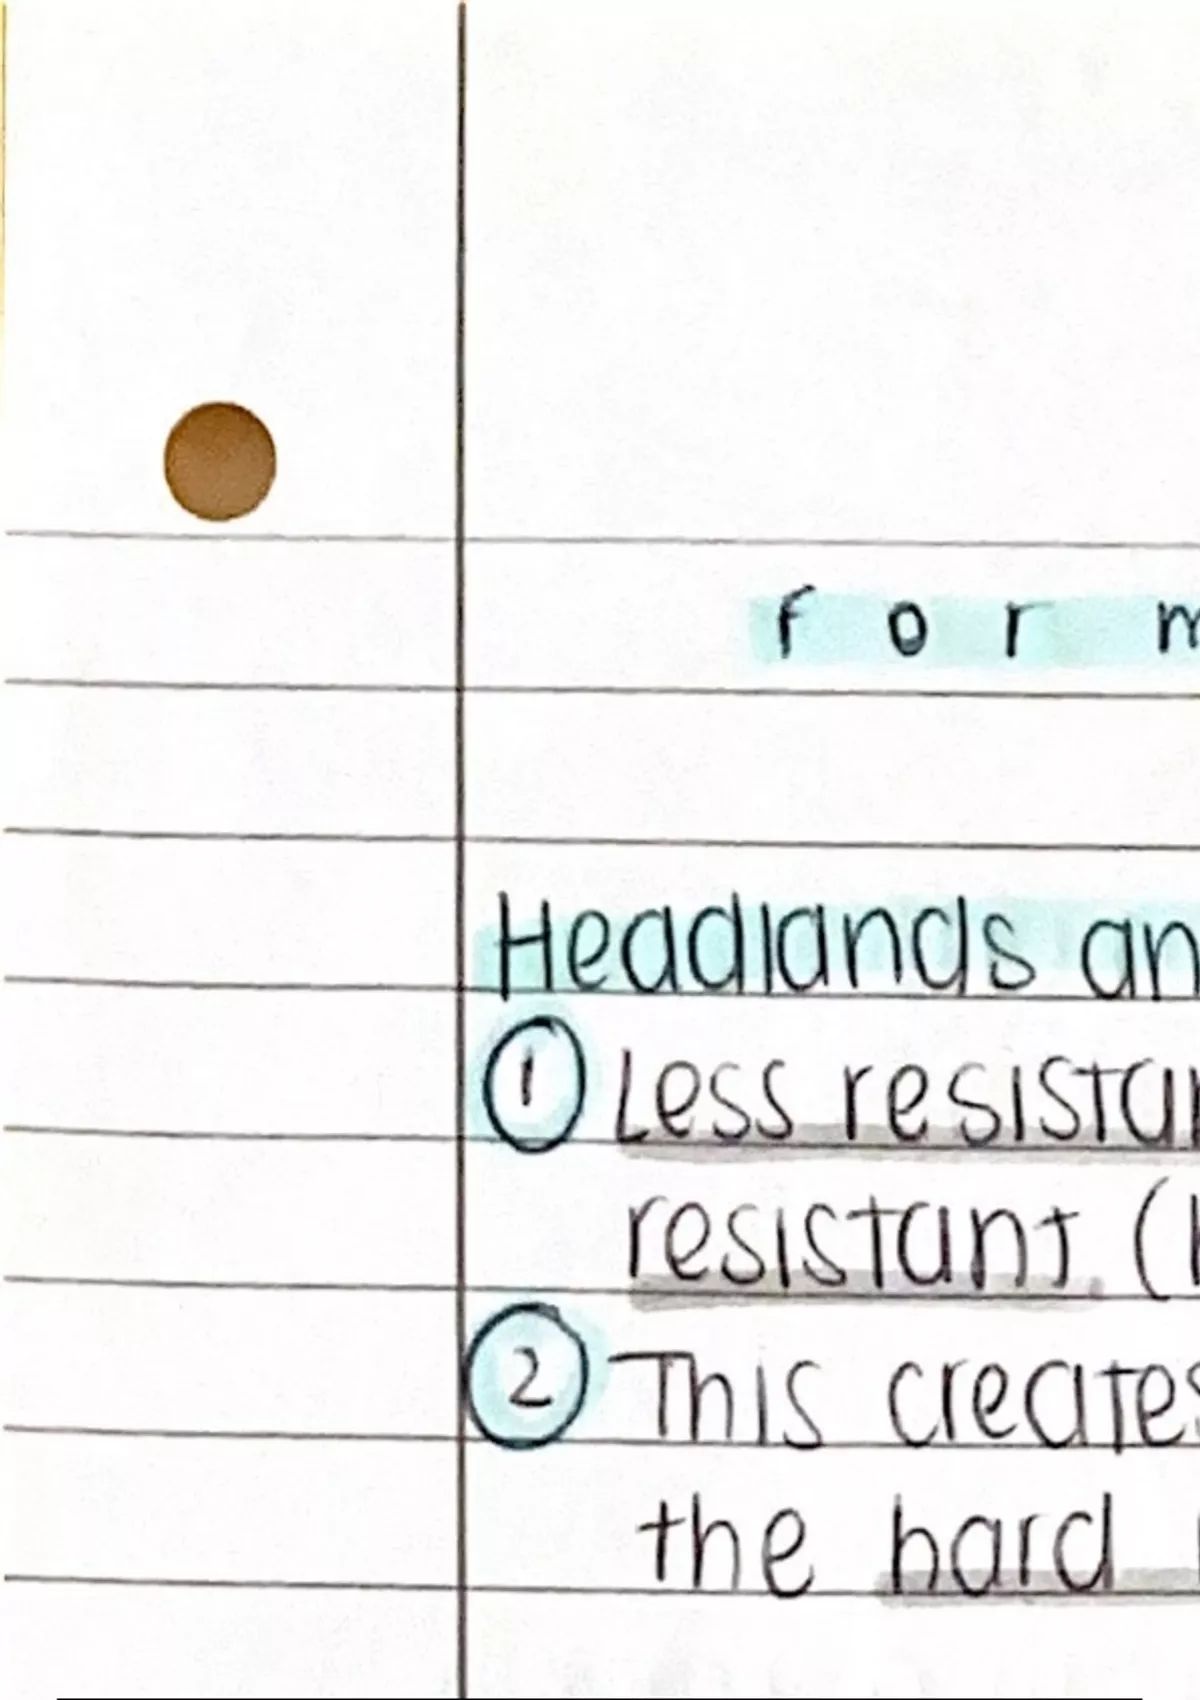 f o r m
Headlands an
1 Less resistan
resistant (h
2 This creates
the hard